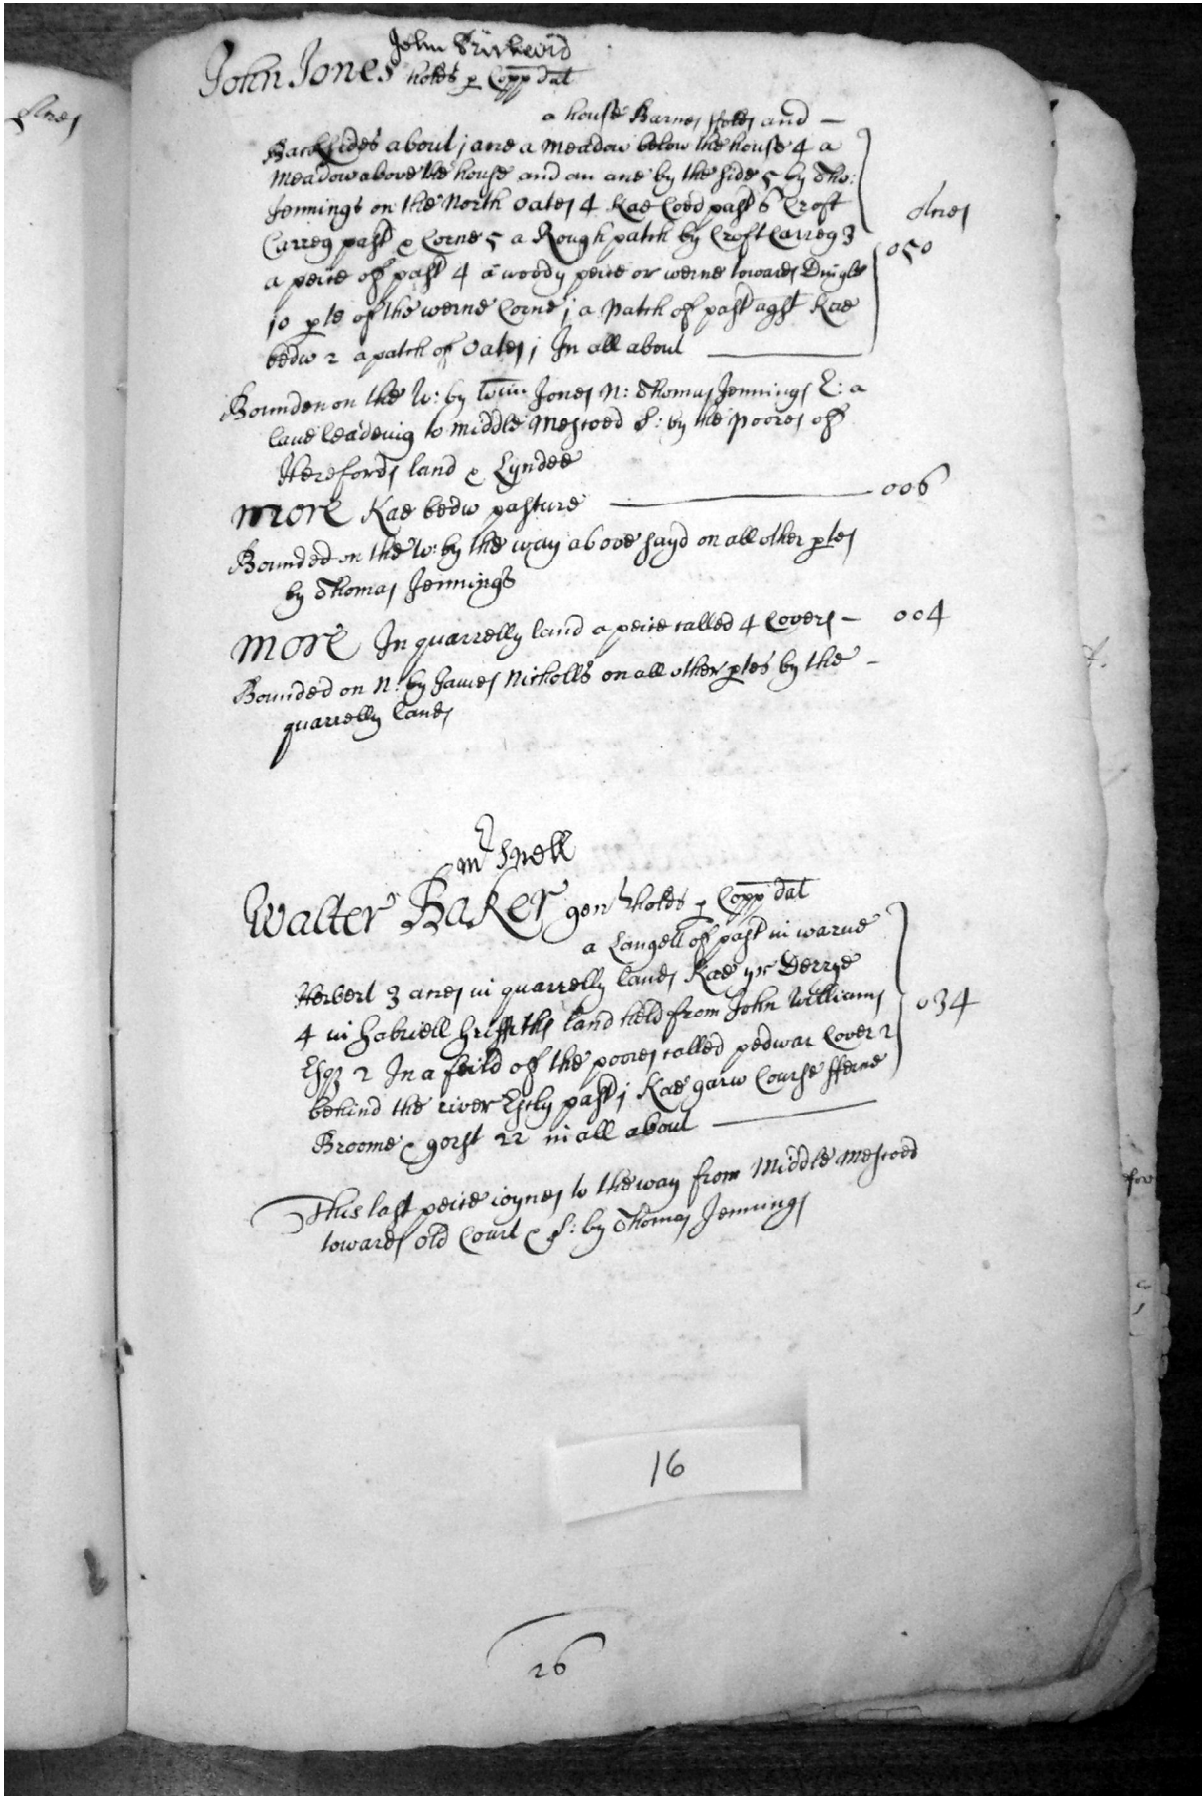 Acres
John
John Jones holds p Copp dat
a house Barnes ffoldes and –
Backsides about j acre a meadow below the house 4 a
meadow above the house and an acre by the side 5 by Tho:
Jennings on the North Oates 4 Kae Coed past 6 Croft
Acres
Carreg past & Corne 5 a Rough patch by Croft Carreg 3
050
a peice of past 4 a woody peice or werne towards Dingle
10 pte of the werne Corne j a Patch of past agst Kae
bedw 2 a patch of Oates j In all about
Bounden on the W: by Wm Jones N: Thomas Jennings E: a
lane leadeing to middle Mescoed S: by the poores of
Herefords land & Lyndee
more Kae bedw pasture 006
Bounded on the W: by the way above sayd on all other ptes
by Thomas Jennings
more In quarrelly land a peice called 4 Covers – 004
Bounded on N: by James Nicholls on all other ptes by the –
quarrelly lands
mr Snell
Walter Baker gent holds p Copp dat
a Langett of past in warne
Herbert 3 acres in quarrelly lands Kae yr Derrye
4 in Gabriell Griffiths land held from John Williams
034
Esqr 2 In a feild of the poores called pedwar Cover 2
behind the river Escly past j Kae garw Course fferne
Broome & gorst 22 in all about
This last peice ioynes to the way from Middle Mescoed
towards old Court & S: by Thomas Jennings
16
26